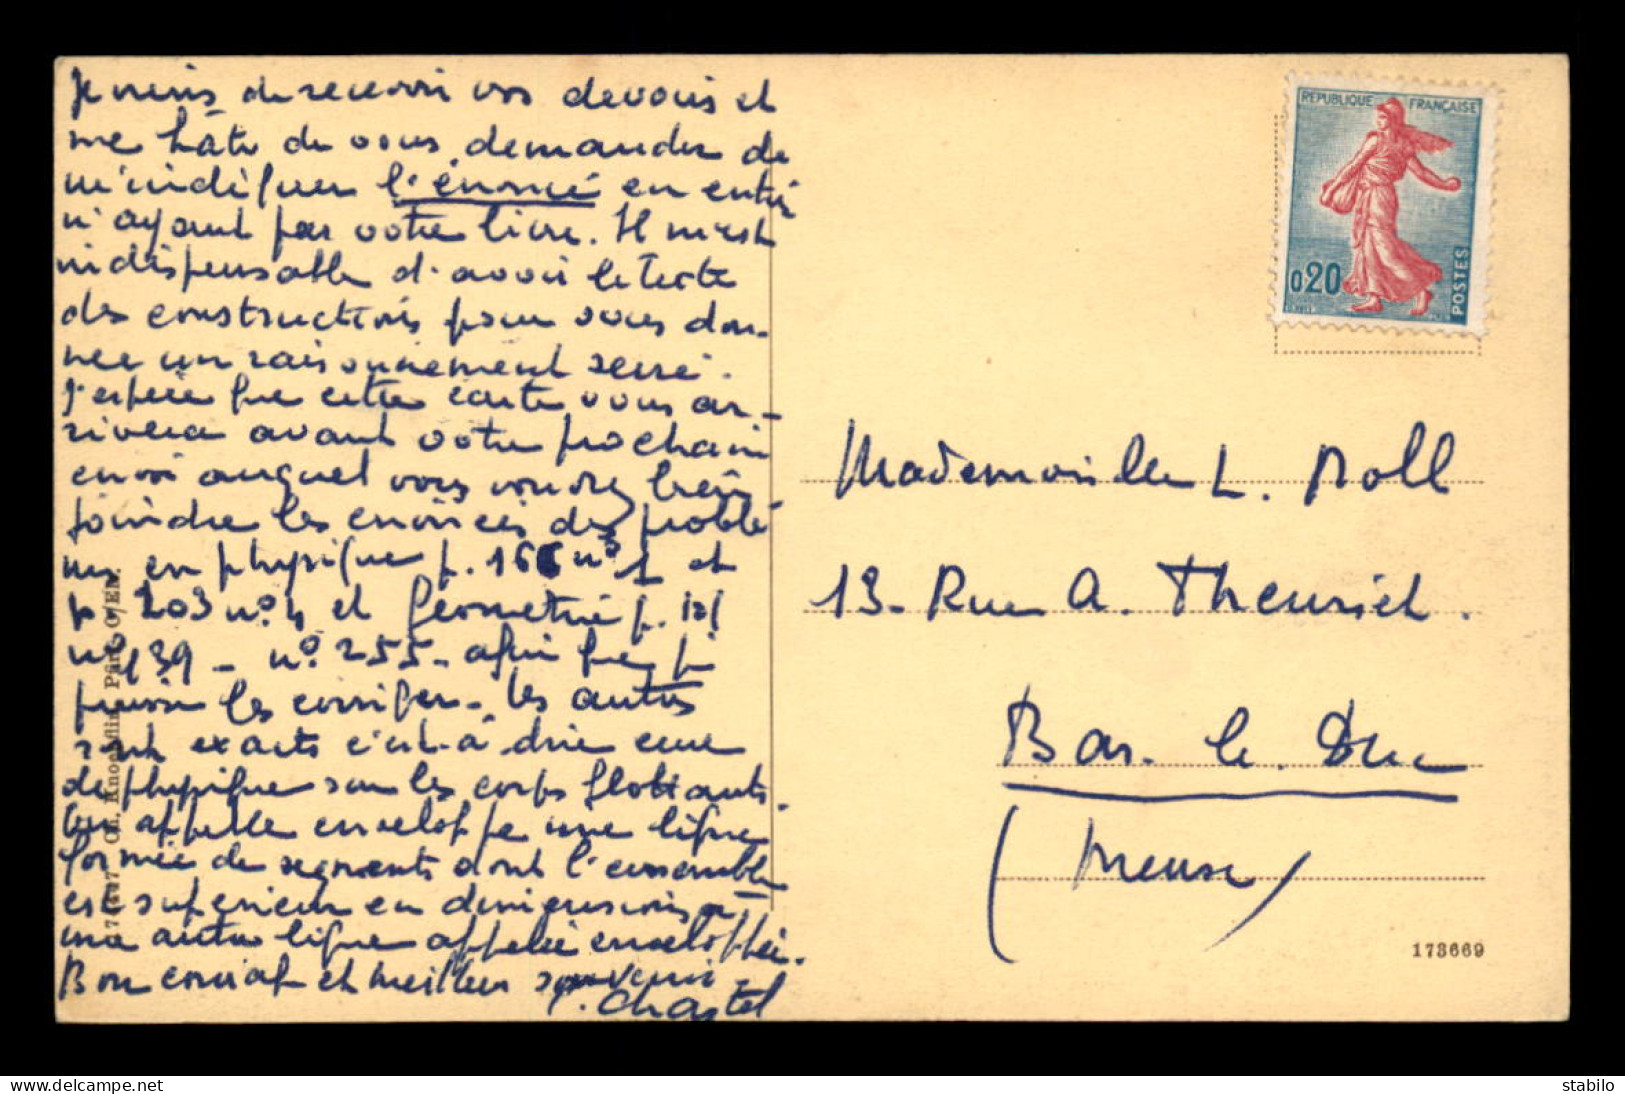 Je viens de recevoir vos devoirs et
me hâte de vous demander de
m'indiquer l'énoncé en entier
n'ayant pas votre livre. Il m'est
indispensable d'avoir le texte
des constructions pour vous don-
ner un raisonnement serré.
J'espère que cette carte vous ar-
rivera avant votre prochain
envoi auquel vous voudrez bien
joindre les énoncés des problè
mes en physique p. 166 n° 1 et
p 203 n° 4 et géométrie p. 121
n° 139 - n° 255 - afin que je
puisse les corriger - les autres
sont exacts c'est-à-dire ceux
de physique sur les corps flottants.
On appelle enveloppe une ligne
formée de segments dont l'ensemble
est supérieur en dimensions à
une autre ligne appelée enveloppée.
Bon courage et meilleur souvenir
Chastel
REPUBLIQUE FRANÇAISE
0,20
POSTES
Mademoiselle L. Noll
13 - Rue A. Theuriet.
Bar-le-Duc
(Meuse)
173669